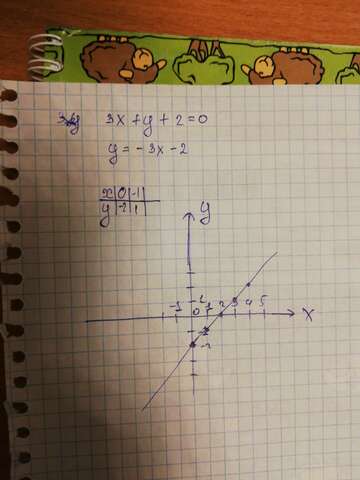 3x + y + 2 = 0
y = -3x - 2
x | 0 | -1 |
y | -2 | 1 |
y
1
-1 0 1 2 3 4 5 x
-2